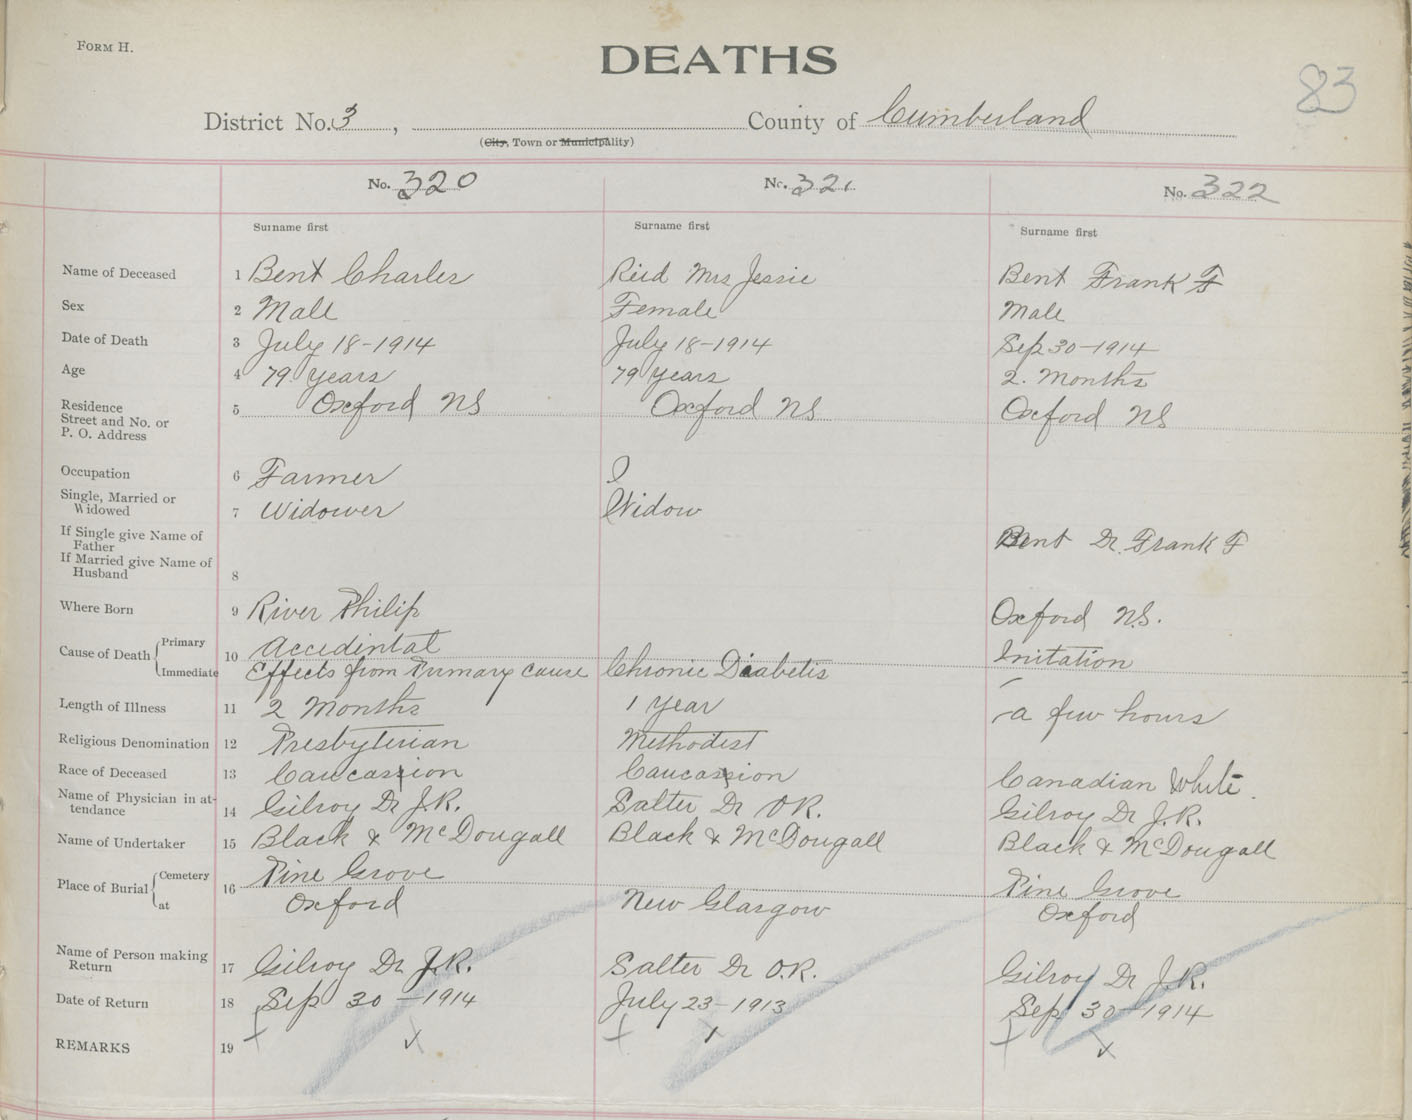 FORM H.
DEATHS
83
District No. 3, County of Cumberland
(City, Town or Municipality)
No. 320 No. 321 No. 322
Surname first Surname first Surname first
Name of Deceased 1 Bent Charles Reid Mrs Jessie Bent Frank F
Sex 2 Male Female Male
Date of Death 3 July 18-1914 July 18-1914 Sep 30-1914
Age 4 79 years 79 years 2. Months
Residence
Street and No. or
P. O. Address 5 Oxford NS Oxford NS Oxford NS
Occupation 6 Farmer
Single, Married or
Widowed 7 Widower Widow
If Single give Name of
Father Bent Dr. Frank F
If Married give Name of
Husband 8
Where Born 9 River Philip Oxford N.S.
Cause of Death Primary 10 Accidintal Initation
Immediate Effects from Primary cause Chronic Diabetis
Length of Illness 11 2 Months 1 year a few hours
Religious Denomination 12 Presbyterian Methodist
Race of Deceased 13 Caucassion Caucassion Canadian White.
Name of Physician in at-
tendance 14 Gilroy Dr J.R. Salter Dr O R. Gilroy Dr J.R.
Name of Undertaker 15 Black & McDougall Black & McDougall Black & McDougall
Place of Burial Cemetery 16 Pine Grove Pine Grove
at Oxford New Glasgow Oxford
Name of Person making
Return 17 Gilroy Dr J.R. Salter Dr O.R. Gilroy Dr J.R.
Date of Return 18 Sep 30-1914 July 23-1913 Sep 30-1914
REMARKS 19